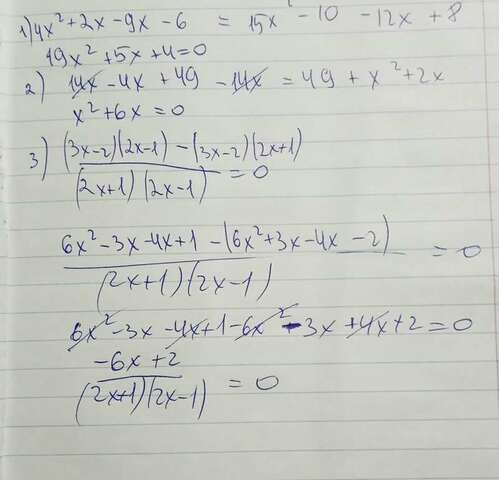 1) 4x² + 2x - 9x - 6 = 15x² - 10 - 12x + 8
19x² + 5x + 4 = 0
2) 14x - 4x + 49 - 14x = 49 + x² + 2x
x² + 6x = 0
3) (3x-2)(2x-1) - (3x-2)(2x+1) / (2x+1)(2x-1) = 0
6x² - 3x - 4x + 1 - (6x² + 3x - 4x - 2) / (2x+1)(2x-1) = 0
6x² - 3x - 4x + 1 - 6x² - 3x + 4x + 2 = 0
-6x + 2 / (2x+1)(2x-1) = 0